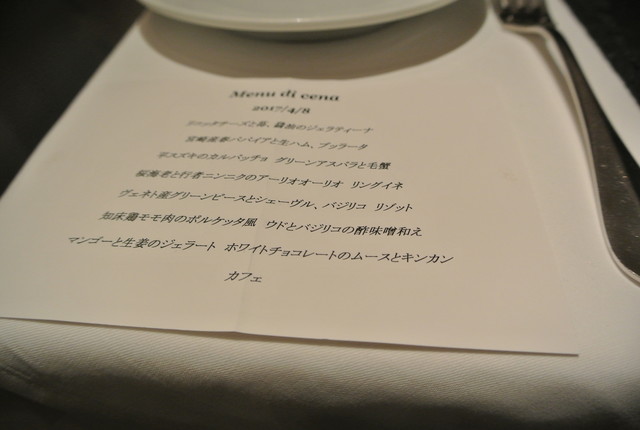 Menu di cena
2017/4/8
リコッタチーズと苺、醤油のジェラティーナ
宮崎産春パパイアと生ハム、ブッラータ
平スズキのカルパッチョ グリーンアスパラと毛蟹
桜海老と行者ニンニクのアーリオオーリオ リングイネ
ヴェネト産グリーンピースとシェーヴル、バジリコ リゾット
知床鶏モモ肉のポルケッタ風 ウドとバジリコの酢味噌和え
マンゴーと生姜のジェラート ホワイトチョコレートのムースとキンカン
カフェ